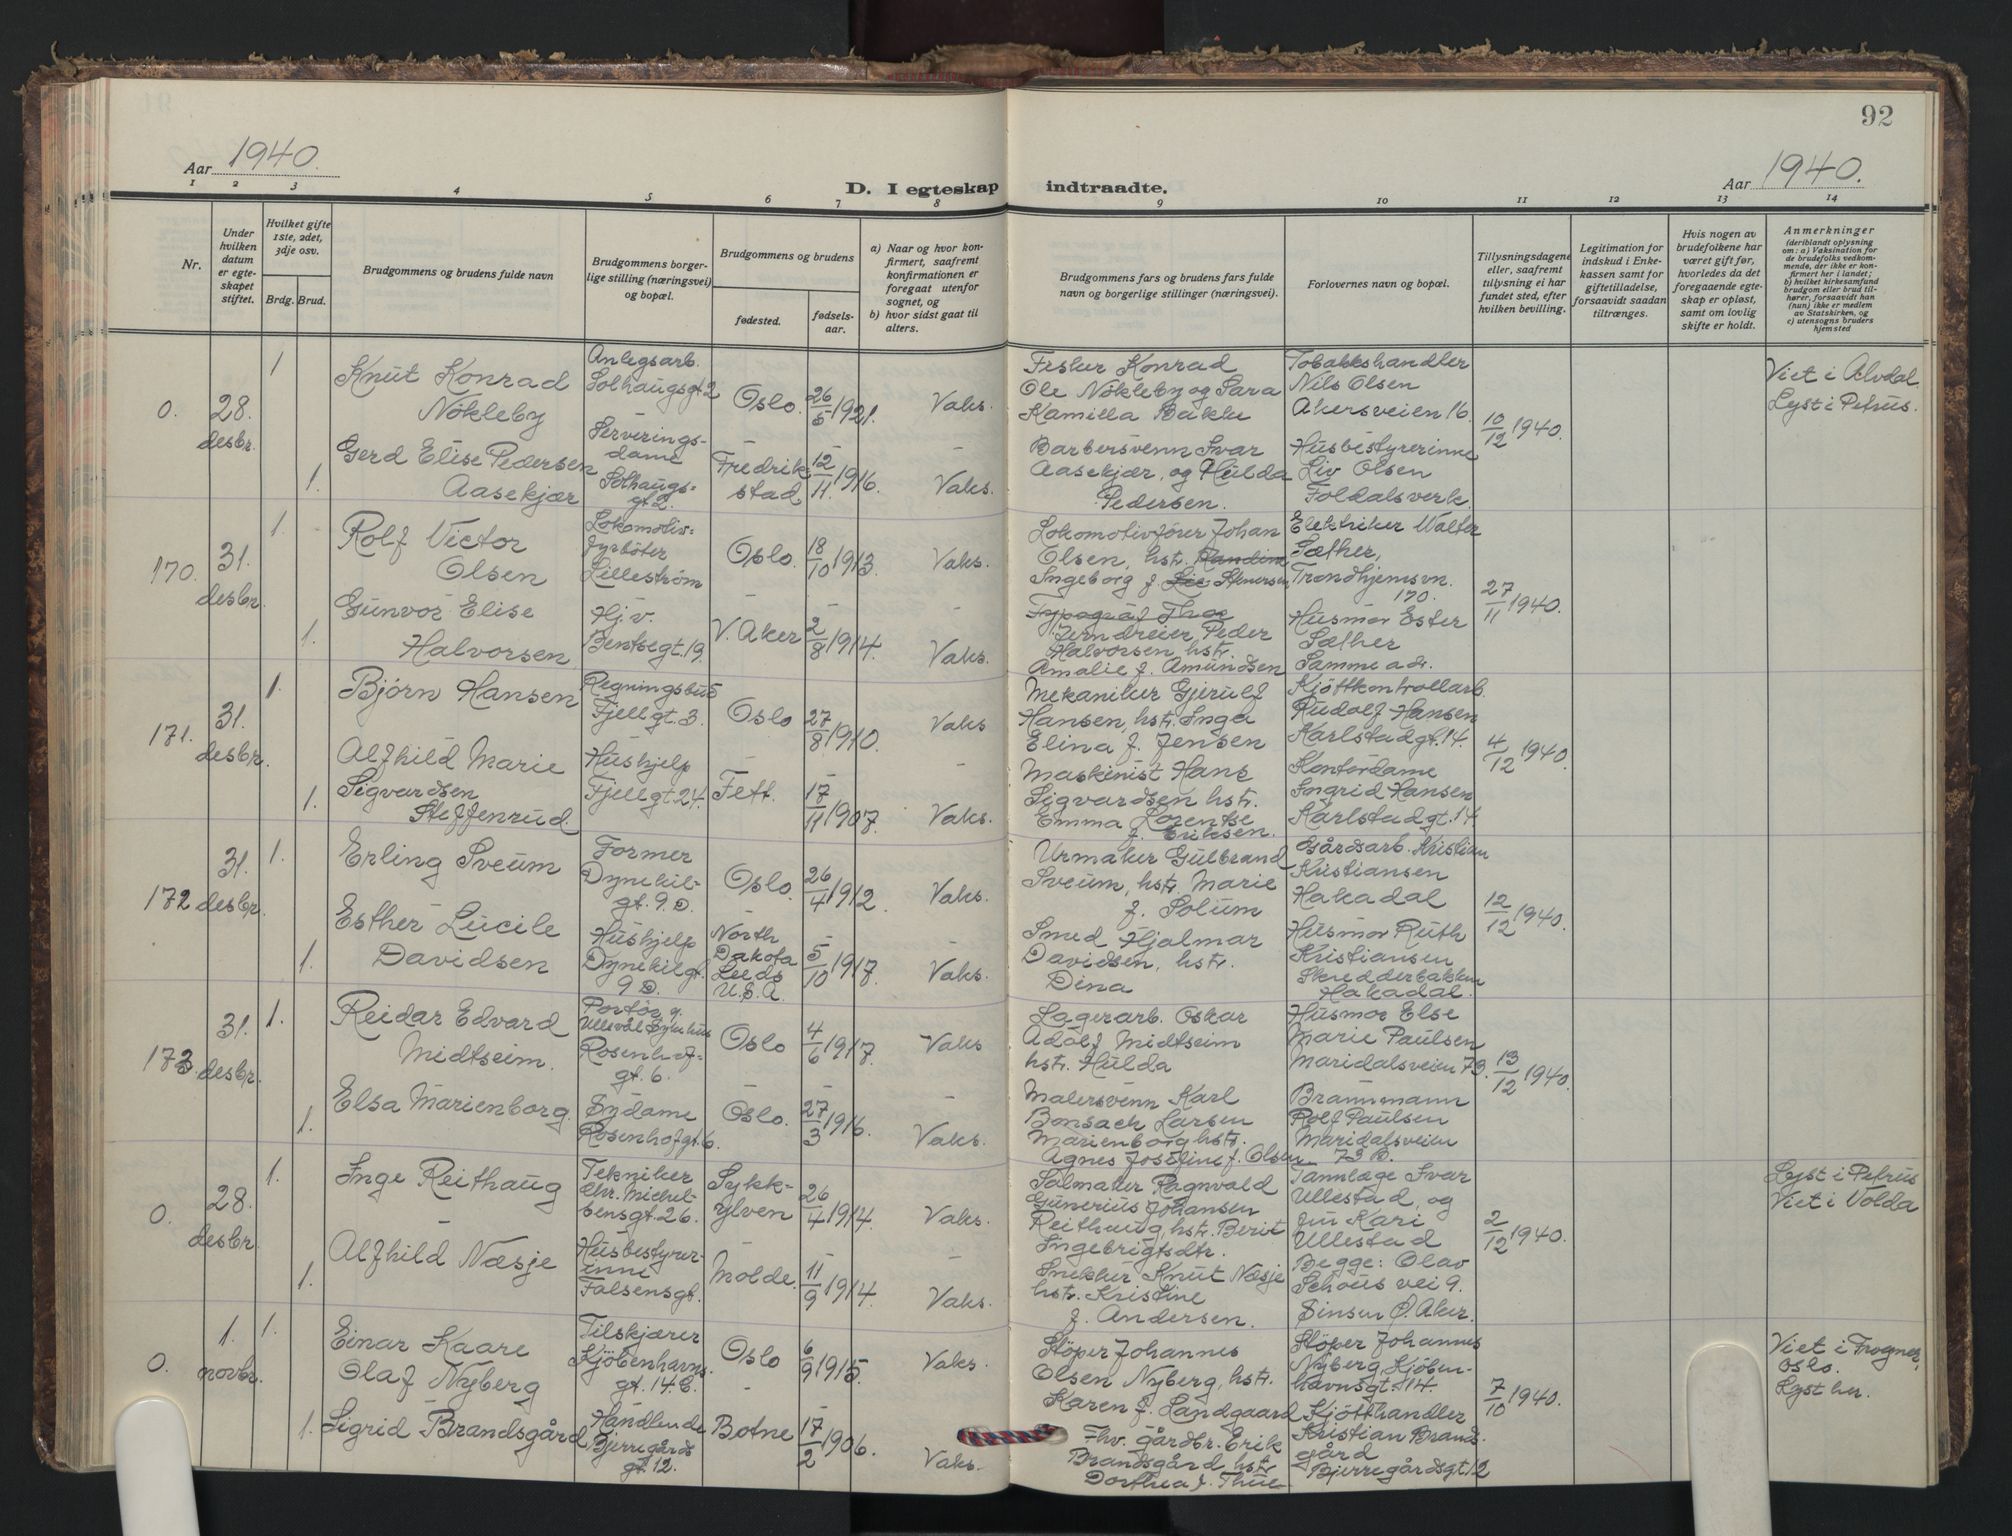 92
Aar 1940.
Aar 1940.
D. I egteskap indtraadte.
1 2 3 4 5 6 7 8 9 10 11 12 13 14
Nr.
Under hvilken datum er egteskapet stiftet.
Hvilket gifte 1ste, 2det, 3dje osv.
Brdg. Brud.
Brudgommens og brudens fulde navn
Brudgommens borgerlige stilling (næringsvei) og bopæl.
Brudgommens og brudens
fødested.
fødselsaar.
a) Naar og hvor konfirmert, saafremt konfirmationen er foregaat utenfor sognet, og
b) hvor sidst gaat til alters.
Brudgommens fars og brudens fars fulde navn og borgerlige stillinger (næringsvei).
Forlovernes navn og bopæl.
Tillysningsdagene eller, saafremt tillysning ei har fundet sted, efter hvilken bevilling.
Legitimation for indskud i Enkekassen samt for giftetilladelse, forsaavidt saadan tiltrænges.
Hvis nogen av brudefolkene har været gift før, hvorledes da det foregaaende egteskap er opløst, samt om lovlig skifte er holdt.
Anmerkninger
(deriblandt oplysning om: a) Vaksination for de brudefolks vedkommende, der ikke er konfirmert her i landet; b) hvilket kirkesamfund brudgom eller brud tilhører, forsaavidt han (hun) ikke er medlem av Statskirken, og c) utensogns bruders hjemsted
0.
28. desbr.
1
Knut Konrad
Nökleby
Anlegsarb.
Solhaugsgt. 2
Oslo.
26/5 1921.
Vaks.
Fisker Konrad
Ole Nökleby og Sara
Kamilla Bakke
Tobakkshandler
Nils Olsen
Akersveien 16.
10/12 1940.
Viet i Alvdal
Lyst i Petrus.
1.
Gerd Elise Pedersen
Aasekjær
Serverings-
dame
Solhaugs-
gt 2.
Fredrik
stad
12/11 1916.
Vaks.
Barbersvenn Ivar
Aasekjær, og Hulda
Pedersen.
Husbestyrerinne
Liv Olsen
Foldalsverk
170.
31. desbr.
1.
Rolf Victor
Olsen
Lokomotiv-
fyrböter
Lilleström
Oslo.
18/10 1913.
Vaks.
Lokomotivförer Johan
Olsen, hstr. Randine
Ingeborg f. Lie Stenersen
Elektriker Walter
Sæther,
Trondhjemsvn.
170.
27/11 1940.
1.
Gunvor Elise
Halvorsen
Hj.v.
Bentsegt. 19.
V. Aker
2/8 1914.
Vaks.
Typograf Thor
Jerndreier Peder
Halvorsen hstr.
Amalie f. Amundsen
Husmor Ester
Sæther
Samme adr.
171.
31. desbr.
1.
Björn Hansen
Regningsbud
Fjellgt. 3.
Oslo
27/8 1910.
Vaks
Mekaniker Gjerulf
Hansen, hstr. Inga
Elina f. Jensen
Kjöttkontrollarb.
Rudolf Hansen
Karlstadgt. 14.
4/12 1940.
1.
Alfhild Marie
Sigvardsen
Steffenrud.
Hushjelp
Fjellgt. 24.
Fett.
17/11 1907.
Vaks.
Maskinist Hans
Sigvardsen hstr.
Emma Lorentse
f. Eriksen.
Kontordame
Ingrid Hansen
Karlstadgt. 14.
172
31. desbr.
1.
Erling Sveum
Former
Dynekil-
gt. 9. D.
Oslo.
26/4 1912.
Vaks.
Urmaker Gulbrand
Sveum, hstr. Marie
f. Solum
Gårdsarb. Kristian
Kristiansen
Hakadal
12/12 1940.
1.
Esther Lucile
Davidsen
Hushjelp
Dynekilgt.
9 D.
North
Dakota
Leeds
U.S.A.
5/10 1917.
Vaks.
Smed Hjalmar
Davidsen, hstr.
Dina
Husmor Ruth
Kristiansen
Skredderbakken
Hakadal.
173.
31. desbr.
1.
Reidar Edvard
Midtseim.
Portör v.
Ullevål Sykehus
Rosenhof-
gt. 6.
Oslo
4/6 1917.
Vaks
Lagerarb. Oskar
Adolf Midtseim
hstr. Hulda
Husmor Else
Marie Paulsen
Maridalsveien 73.
13/12 1940.
1.
Elsa Marienborg.
Sydame
Rosenhofgt. 6.
Oslo.
27/3 1916.
Vaks.
Malersvenn Karl
Bonsach Larsen
Marienborg hstr.
Agnes Josefine f. Olsen
Brannmann
Rolf Paulsen
Maridalsveien
73 B.
0.
28. desbr.
1.
Inge Reithaug
Tekniker
Chr. Michel-
sensgt. 26.
Sykk-
ylven
26/4 1914.
Vaks.
Salmaker Ragnvald
Gunerius Johansen
Reithaug, hstr. Berit
Ingebrigtsdtr.
Tannlæge Ivar
Ullestad, og
fru Kari
Ullestad
2/12 1940.
Lyst i Petrus
Viet i Volda
1.
Alfhild Næsje
Husbestyrer-
inne
Falsensgt.
Molde.
11/9 1914.
Vaks.
Snekker Knut Næsje
hstr. Kristine
f. Andersen.
Begge: Olav
Schous vei 9.
Sinsen Ö. Aker.
0.
1. novbr.
1.
Einar Kaare
Olaf Nyberg
Tilskjærer
Kjöbenhavns-
gt. 14 C.
Oslo
6/9 1915.
Vaks.
Stöper Johannes
Olsen Nyberg, hstr.
Karen f. Landgaard
Stöper Johannes
Nyberg Kjöben-
havnsgt. 14.
7/10 1940.
Viet i Frogner,
Oslo.
Lyst her.
1.
Sigrid Brandsgård
Handlende
Bjerregårds
gt. 12.
Botne
17/2 1906.
Vaks.
Fhv. gårdbr. Erik
Brandsgård hstr
Dorthea f. Thue
Kjötthandler
Kristian Brands-
gård
Bjerregårdsgt 12